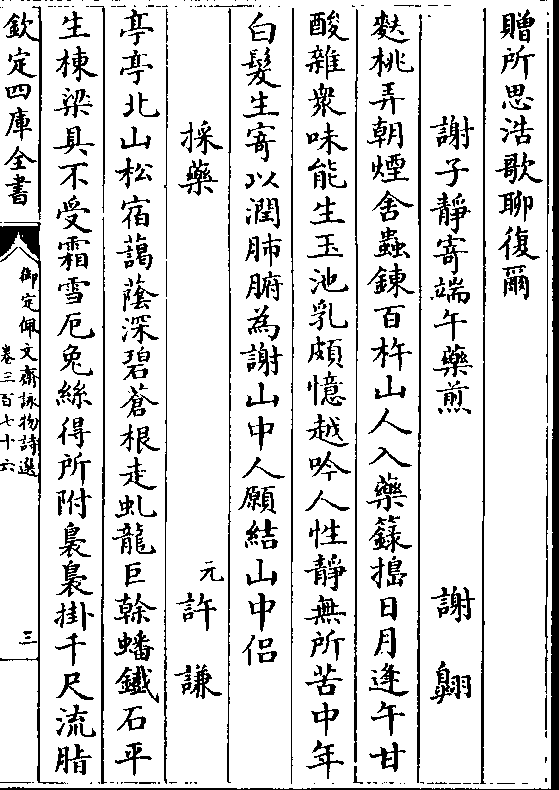 贈所思浩歌聊復爾
謝子靜寄端午藥煎 謝翺
麩桃弄朝煙舍蟲鍊百杵山人入藥籙搗日月逢午甘
酸雜衆味能生玉池乳頗憶越吟人性靜無所苦中年
白髮生寄以潤肺腑為謝山中人願結山中侶
採藥 元許謙
亭亭北山松宿藹蔭深碧蒼根走虬龍巨榦蟠鐵石平
生棟梁具不受霜雪厄兔絲得所附裊裊掛千尺流脂
欽定四庫全書
御定佩文齋詠物詩選
卷三百七十六
三